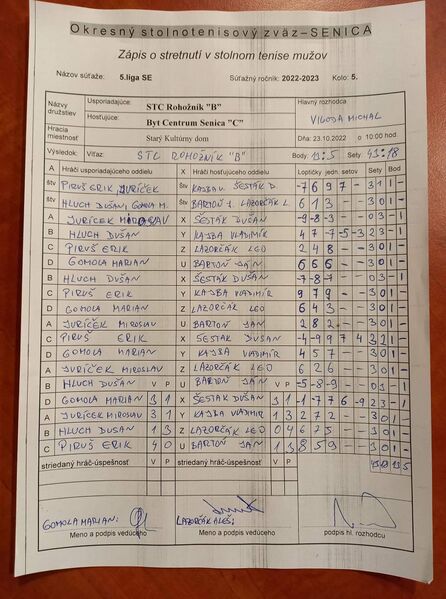 Okresný stolnotenisový zväz–SENICA
Zápis o stretnutí v stolnom tenise mužov
Názov súťaže: 5.liga SE Súťažný ročník: 2022-2023 Kolo: 5.
Názvy družstiev Usporiadajúce: STC Rohožník "B" Hlavný rozhodca
Hosťujúce: Byt Centrum Senica "C" VIGODA MICHAL
Hracia miestnosť Starý Kultúrny dom Dňa: 23.10.2022 o 10:00 hod
Výsledok: Víťaz: STC ROHOŽNÍK "B" Body: 13:5 Sety 43:18
A Hráči usporiadajúceho oddielu X Hráči hosťujúceho oddielu Loptičky jedn. setov Sety Bod
štv PIRUŠ ERIK, JURÍČEK štv KAJBA V. ŠESTÁK D. -7 6 9 7 - 3 1 1 -
štv HLUCH DUŠAN, GOMOLA M. štv BARTOŇ J. LAZORČÁK L. 6 1 3 - - 3 0 1 -
A JURÍČEK MIROSLAV X ŠESTÁK DUŠAN -9 -8 -3 - - 0 3 - 1
B HLUCH DUŠAN Y KAJBA VLADIMÍR 4 7 -7 -5 -3 2 3 - 1
C PIRUŠ ERIK Z LAZORČÁK LEO 2 4 8 - - 3 0 1 -
D GOMOLA MARIAN U BARTOŇ JÁN 6 6 6 - - 3 0 1 -
B HLUCH DUŠAN X ŠESTÁK DUŠAN -7 -8 -7 - - 0 3 - 1
C PIRUŠ ERIK Y KAJBA VLADIMÍR 9 7 9 - - 3 0 1 -
D GOMOLA MARIAN Z LAZORČÁK LEO 6 4 3 - - 3 0 1 -
A JURÍČEK MIROSLAV U BARTOŇ JÁN 2 8 2 - - 3 0 1 -
C PIRUŠ ERIK X ŠESTÁK DUŠAN -4 -9 9 7 4 3 2 1 -
D GOMOLA MARIAN Y KAJBA VLADIMÍR 4 5 7 - - 3 0 1 -
A JURÍČEK MIROSLAV Z LAZORČÁK LEO 6 2 6 - - 3 0 1 -
B HLUCH DUŠAN V P U BARTOŇ JÁN V P -5 -8 -9 - - 0 3 - 1
D GOMOLA MARIAN 3 1 X ŠESTÁK DUŠAN 3 1 -1 -7 7 6 -9 2 3 - 1
A JURÍČEK MIROSLAV 3 1 Y KAJBA VLADIMÍR 1 3 2 7 2 - - 3 0 1 -
B HLUCH DUŠAN 1 3 Z LAZORČÁK LEO 0 4 6 7 5 - - 3 0 1 -
C PIRUŠ ERIK 4 0 U BARTOŇ JÁN 1 3 8 5 9 - - 3 0 1 -
striedaný hráč-úspešnosť V P striedaný hráč-úspešnosť V P 43 18 13 5
GOMOLA MARIAN: LAZORČÁK ALEŠ:
Meno a podpis vedúceho Meno a podpis vedúceho podpis hl. rozhodcu